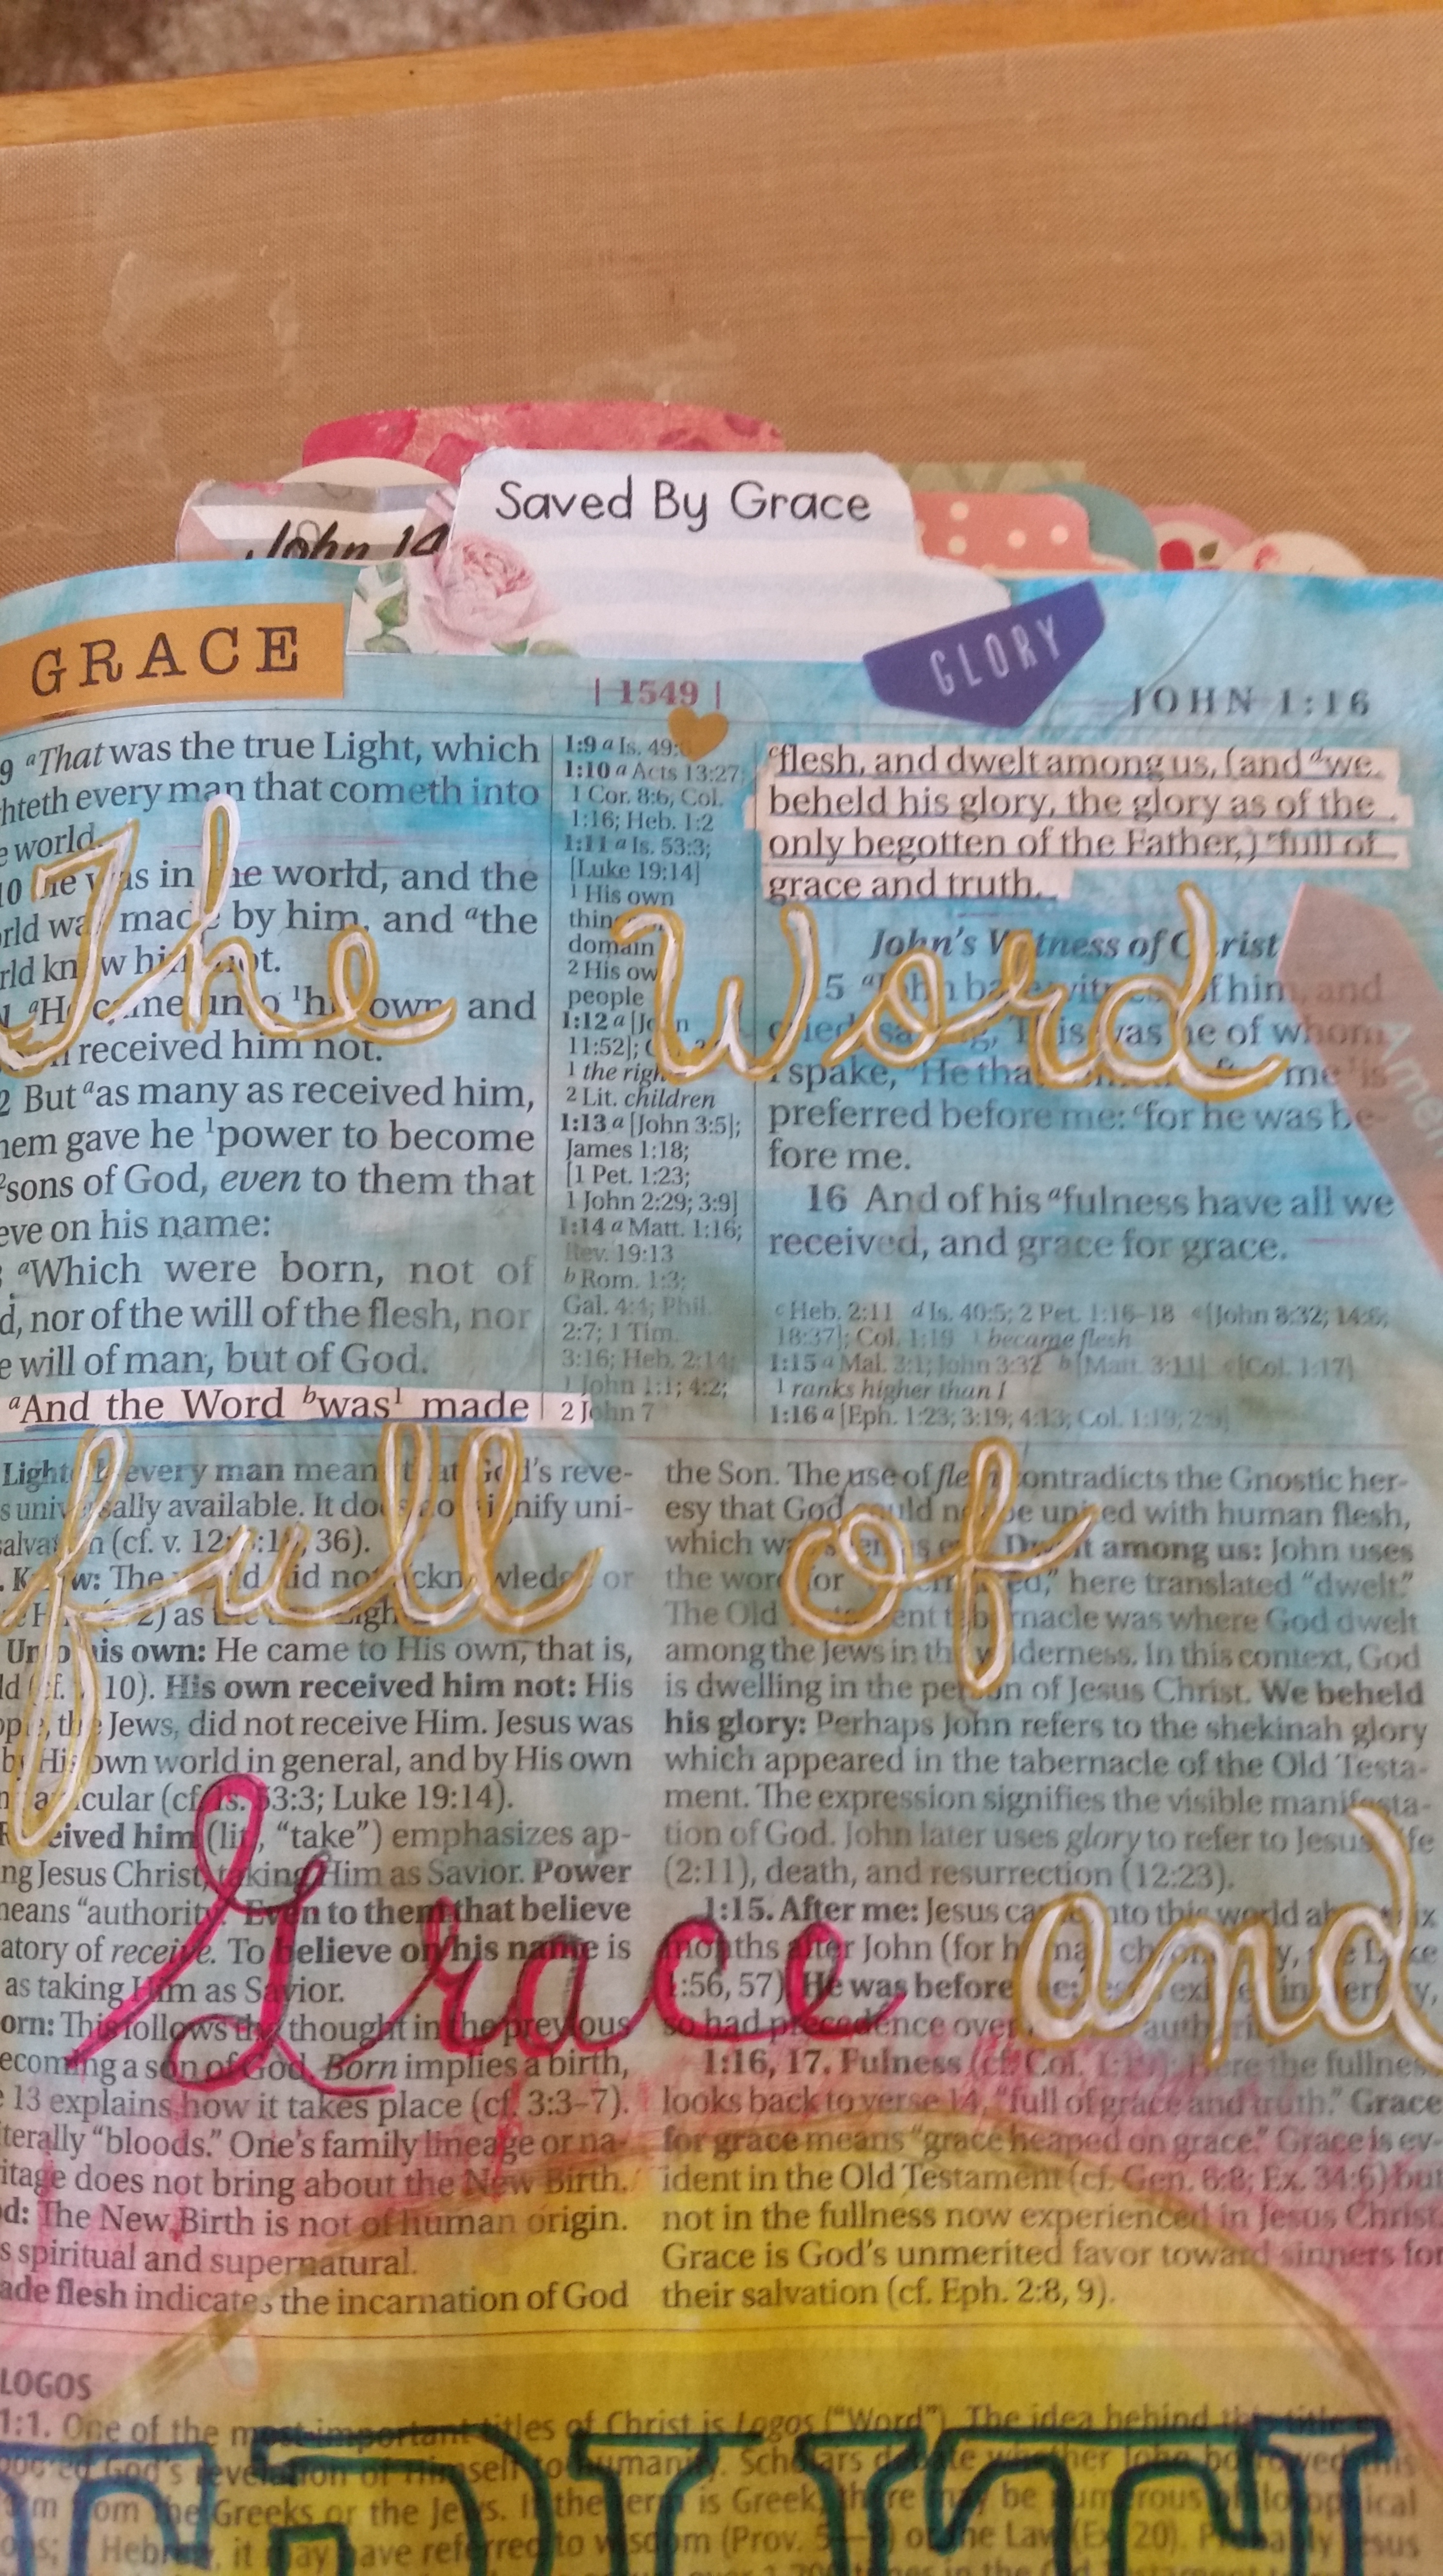 Saved By Grace
John 14
GRACE
GLORY
| 1549 |
JOHN 1:16
9 aThat was the true Light, which
hteth every man that cometh into
e world.
10 he was in the world, and the
rld was made by him, and athe
rld knew him not.
1 aHe came unto 1his own, and
received him not.
2 But aas many as received him,
hem gave he 1power to become
2sons of God, even to them that
eve on his name:
aWhich were born, not of
d, nor of the will of the flesh, nor
e will of man, but of God.
aAnd the Word bwas1 made
1:9 a Is. 49:
1:10 a Acts 13:27;
1 Cor. 8:6; Col.
1:16; Heb. 1:2
1:11 a Is. 53:3;
[Luke 19:14]
1 His own
domain
2 His ow
people
1:12 a [John
11:52];
1 the righ
2 Lit. children
1:13 a [John 3:5];
James 1:18;
[1 Pet. 1:23;
1 John 2:29; 3:9]
1:14 a Matt. 1:16;
Rev. 19:13
b Rom. 1:3;
Gal. 4:4; Phil.
2:7; 1 Tim.
3:16; Heb. 2:14;
1 John 1:1; 4:2;
2 John 7
cflesh, and dwelt among us, (and dwe
beheld his glory, the glory as of the
only begotten of the Father,) efull of
grace and truth.
John's Witness of Christ
15 aJohn bare witness of him, and
cried, saying, This was he of whom
I spake, bHe that cometh after me is
preferred before me: cfor he was be-
fore me.
16 And of his afulness have all we
received, and grace for grace.
c Heb. 2:11 d Is. 40:5; 2 Pet. 1:16–18 e [John 8:32; 14:6;
18:37]; Col. 1:19 1 became flesh
1:15 a Mal. 3:1; John 3:32 b [Matt. 3:11] c [Col. 1:17]
1 ranks higher than I
1:16 a [Eph. 1:23; 3:19; 4:13; Col. 1:19; 2:9]
Amen
The Word
full of
Grace and
Light every man means that God's reve-
s universally available. It does not signify uni-
salvation (cf. v. 12; 36).
Know: The world did not acknowledge or
Unto his own: He came to His own, that is,
10). His own received him not: His
ople, the Jews, did not receive Him. Jesus was
by His own world in general, and by His own
articular (cf. Is. 53:3; Luke 19:14).
eived him (lit., “take”) emphasizes ap-
ng Jesus Christ, taking Him as Savior. Power
means “authority.” Even to them that believe
atory of receive. To believe on his name is
as taking Him as Savior.
orn: This follows the thought in the previous
ecoming a son of God. Born implies a birth,
13 explains how it takes place (cf. 3:3–7).
terally “bloods.” One's family lineage or na-
itage does not bring about the New Birth.
d: The New Birth is not of human origin.
s spiritual and supernatural.
ade flesh indicates the incarnation of God
the Son. The use of flesh contradicts the Gnostic her-
esy that God could not be united with human flesh,
which was Dwelt among us: John uses
the word for here translated “dwelt.”
The Old Testament tabernacle was where God dwelt
among the Jews in the wilderness. In this context, God
is dwelling in the person of Jesus Christ. We beheld
his glory: Perhaps John refers to the shekinah glory
which appeared in the tabernacle of the Old Testa-
ment. The expression signifies the visible manifesta-
tion of God. John later uses glory to refer to Jesus' life
(2:11), death, and resurrection (12:23).
1:15. After me: Jesus came into this world about six
months after John (for human chronology, see Luke
1:56, 57). He was before
so had precedence over
1:16, 17. Fulness (cf. Col. 1:19): Here the fullness
looks back to verse 14, “full of grace and truth.” Grace
for grace means “grace heaped on grace.” Grace is ev-
ident in the Old Testament (cf. Gen. 6:8; Ex. 34:6) but
not in the fullness now experienced in Jesus Christ.
Grace is God's unmerited favor toward sinners for
their salvation (cf. Eph. 2:8, 9).
LOGOS
1:1. One of the most important titles of Christ is Logos (“Word”). The idea behind this title
God's revelation of Himself to humanity. Scholars debate whether John borrowed this
from the Greeks or the Jews. If the term is Greek, there may be numerous philosophical
Hebrew, it may have referred to wisdom (Prov. or the Law (Ex. 20). Probably Jesus